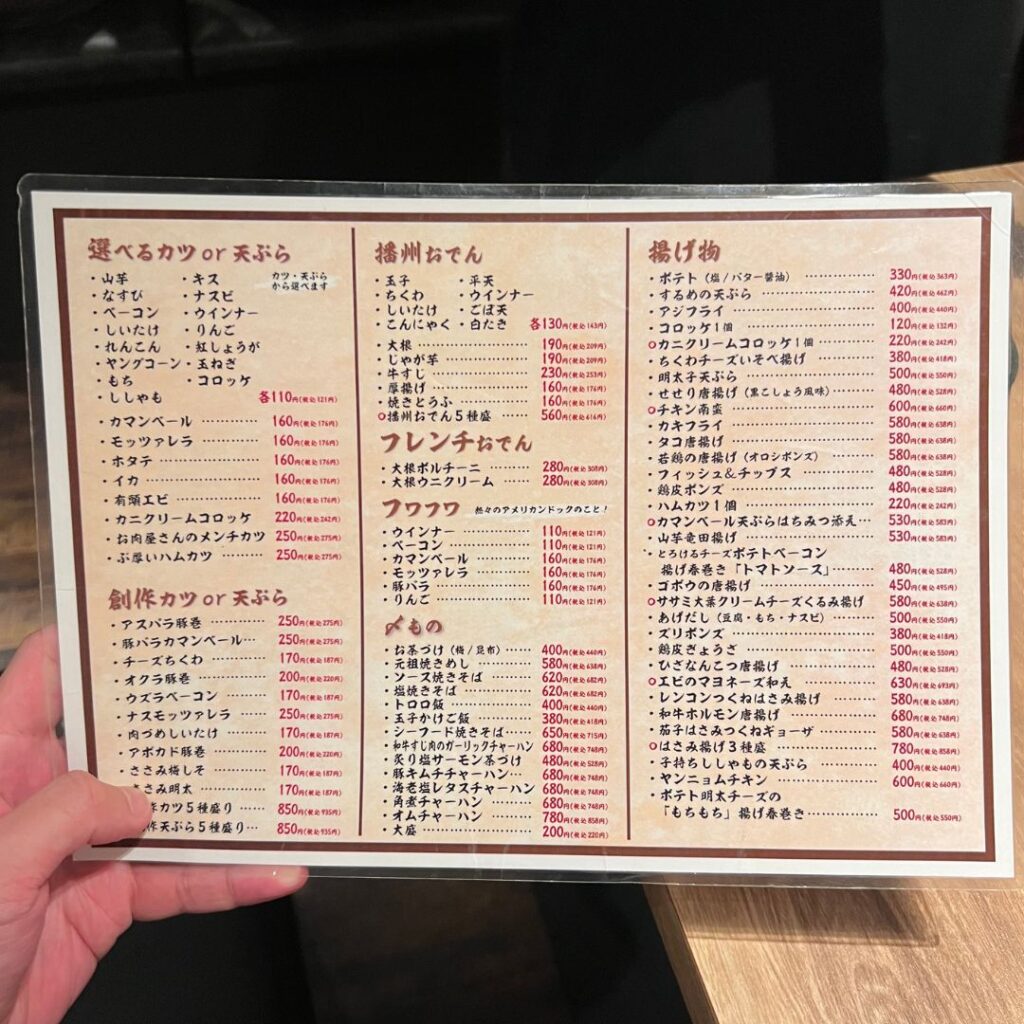 選べるカツ or 天ぷら
カツ・天ぷら
から選べます
・山芋 ・キス
・なすび ・ナスビ
・ベーコン ・ウインナー
・しいたけ ・りんご
・れんこん ・紅しょうが
・ヤングコーン ・玉ねぎ
・もち ・コロッケ
・ししゃも 各110円(税込121円)
・カマンベール 160円(税込176円)
・モッツァレラ 160円(税込176円)
・ホタテ 160円(税込176円)
・イカ 160円(税込176円)
・有頭エビ 160円(税込176円)
・カニクリームコロッケ 220円(税込242円)
・お肉屋さんのメンチカツ 250円(税込275円)
・ぶ厚いハムカツ 250円(税込275円)
創作カツ or 天ぷら
・アスパラ豚巻 250円(税込275円)
・豚バラカマンベール 250円(税込275円)
・チーズちくわ 170円(税込187円)
・オクラ豚巻 200円(税込220円)
・ウズラベーコン 170円(税込187円)
・ナスモッツァレラ 250円(税込275円)
・肉づめしいたけ 170円(税込187円)
・アボカド豚巻 200円(税込220円)
・ささみ梅しそ 170円(税込187円)
ささみ明太 170円(税込187円)
作カツ5種盛り 850円(税込935円)
作天ぷら5種盛り 850円(税込935円)
播州おでん
・玉子 ・平天
・ちくわ ・ウインナー
・しいたけ ・ごぼ天
・こんにゃく ・白たき 各130円(税込143円)
・大根 190円(税込209円)
・じゃが芋 190円(税込209円)
・牛すじ 230円(税込253円)
・厚揚げ 160円(税込176円)
・焼きとうふ 160円(税込176円)
○播州おでん5種盛 560円(税込616円)
フレンチおでん
・大根ポルチーニ 280円(税込308円)
・大根ウニクリーム 280円(税込308円)
フワフワ 熱々のアメリカンドックのこと!
・ウインナー 110円(税込121円)
・ベーコン 110円(税込121円)
・カマンベール 160円(税込176円)
・モッツァレラ 160円(税込176円)
・豚バラ 160円(税込176円)
・りんご 110円(税込121円)
〆もの
・お茶づけ(梅/昆布) 400円(税込440円)
・元祖焼きめし 580円(税込638円)
・ソース焼きそば 620円(税込682円)
・塩焼きそば 620円(税込682円)
・トロロ飯 400円(税込440円)
・玉子かけご飯 380円(税込418円)
・シーフード焼きそば 650円(税込715円)
・和牛すじ肉のガーリックチャーハン 680円(税込748円)
・炙り塩サーモン茶づけ 480円(税込528円)
・豚キムチチャーハン 680円(税込748円)
・海老塩レタスチャーハン 680円(税込748円)
・角煮チャーハン 680円(税込748円)
・オムチャーハン 780円(税込858円)
・大盛 200円(税込220円)
揚げ物
・ポテト(塩/バター醤油) 330円(税込363円)
・するめの天ぷら 420円(税込462円)
・アジフライ 400円(税込440円)
・コロッケ1個 120円(税込132円)
○カニクリームコロッケ1個 220円(税込242円)
・ちくわチーズいそべ揚げ 380円(税込418円)
・明太子天ぷら 500円(税込550円)
・せせり唐揚げ(黒こしょう風味) 480円(税込528円)
○チキン南蛮 600円(税込660円)
・カキフライ 580円(税込638円)
・タコ唐揚げ 580円(税込638円)
・若鶏の唐揚げ(オロシポンズ) 580円(税込638円)
・フィッシュ&チップス 480円(税込528円)
・鶏皮ポンズ 480円(税込528円)
・ハムカツ1個 220円(税込242円)
○カマンベール天ぷらはちみつ添え 530円(税込583円)
・山芋竜田揚げ 530円(税込583円)
・とろけるチーズポテトベーコン
揚げ春巻き「トマトソース」 480円(税込528円)
・ゴボウの唐揚げ 450円(税込495円)
○ササミ大葉クリームチーズくるみ揚げ 580円(税込638円)
・あげだし(豆腐・もち・ナスビ) 500円(税込550円)
・ズリポンズ 380円(税込418円)
・鶏皮ぎょうざ 500円(税込550円)
・ひざなんこつ唐揚げ 480円(税込528円)
○エビのマヨネーズ和え 630円(税込693円)
・レンコンつくねはさみ揚げ 580円(税込638円)
・和牛ホルモン唐揚げ 680円(税込748円)
・茄子はさみつくねギョーザ 580円(税込638円)
○はさみ揚げ3種盛 780円(税込858円)
・子持ちししゃもの天ぷら 400円(税込440円)
・ヤンニョムチキン 600円(税込660円)
・ポテト明太チーズの
「もちもち」揚げ春巻き 500円(税込550円)